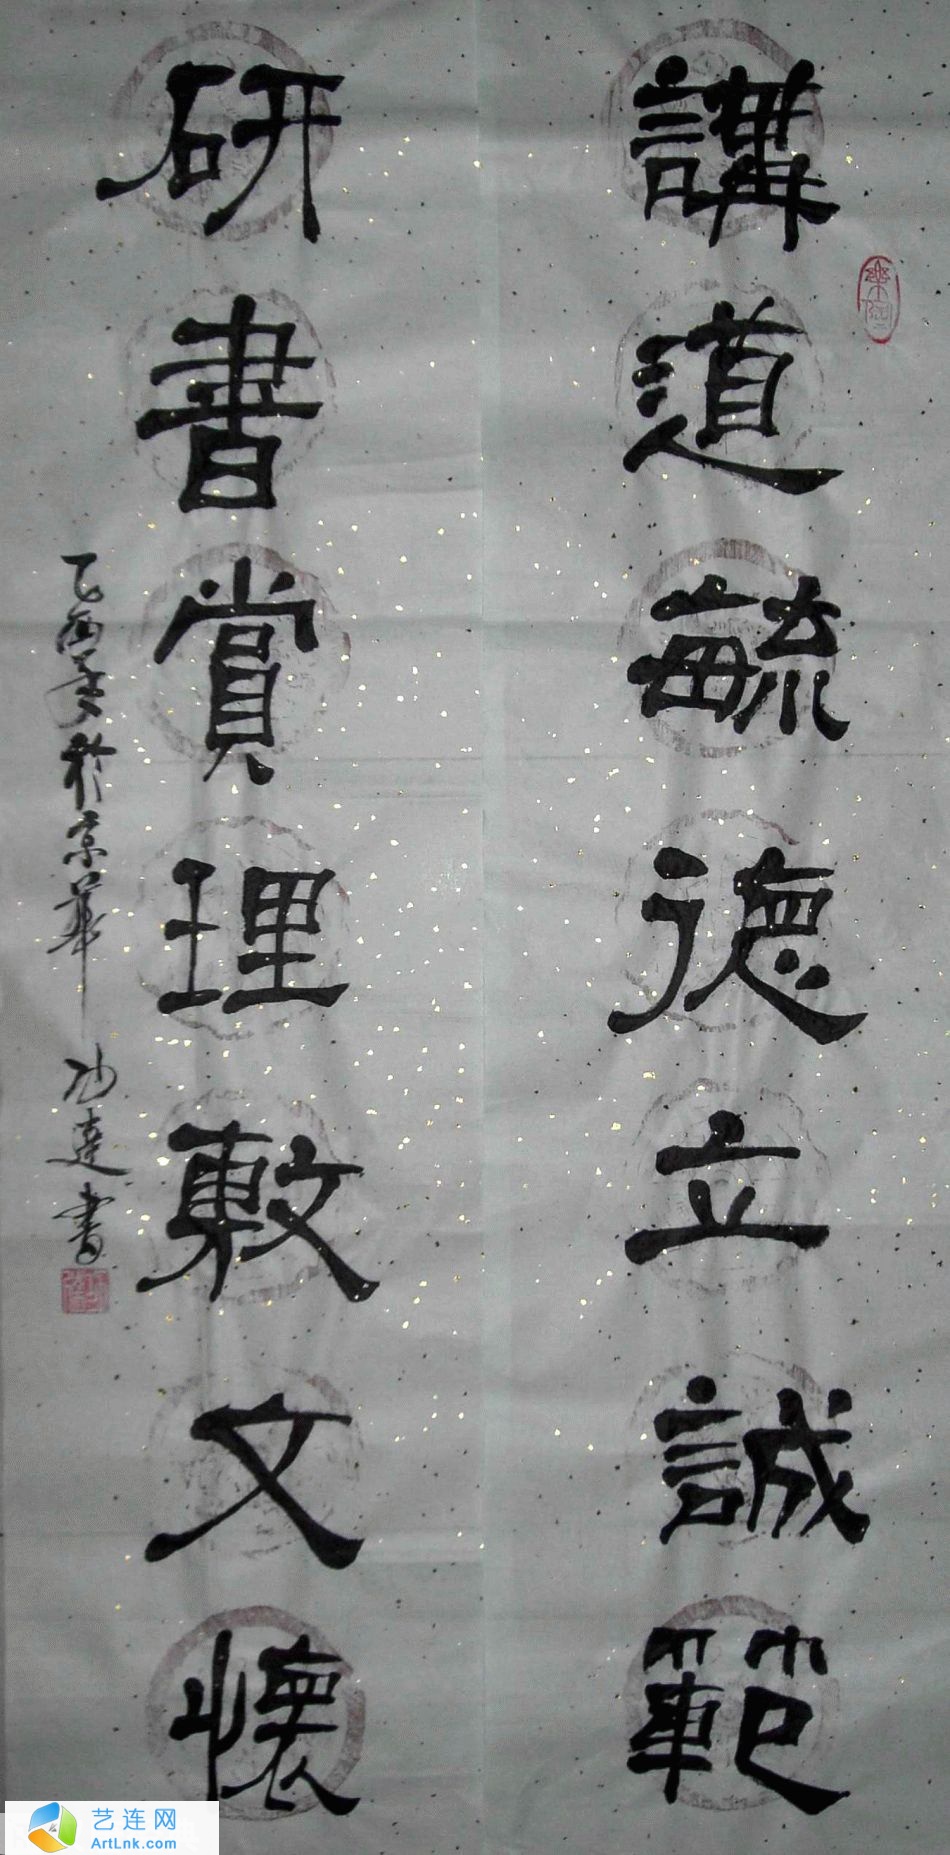 講道毓德立誠範
研書賞理敷文懷
乙酉夏於京華
達書
艺连网
ArtLnk.com